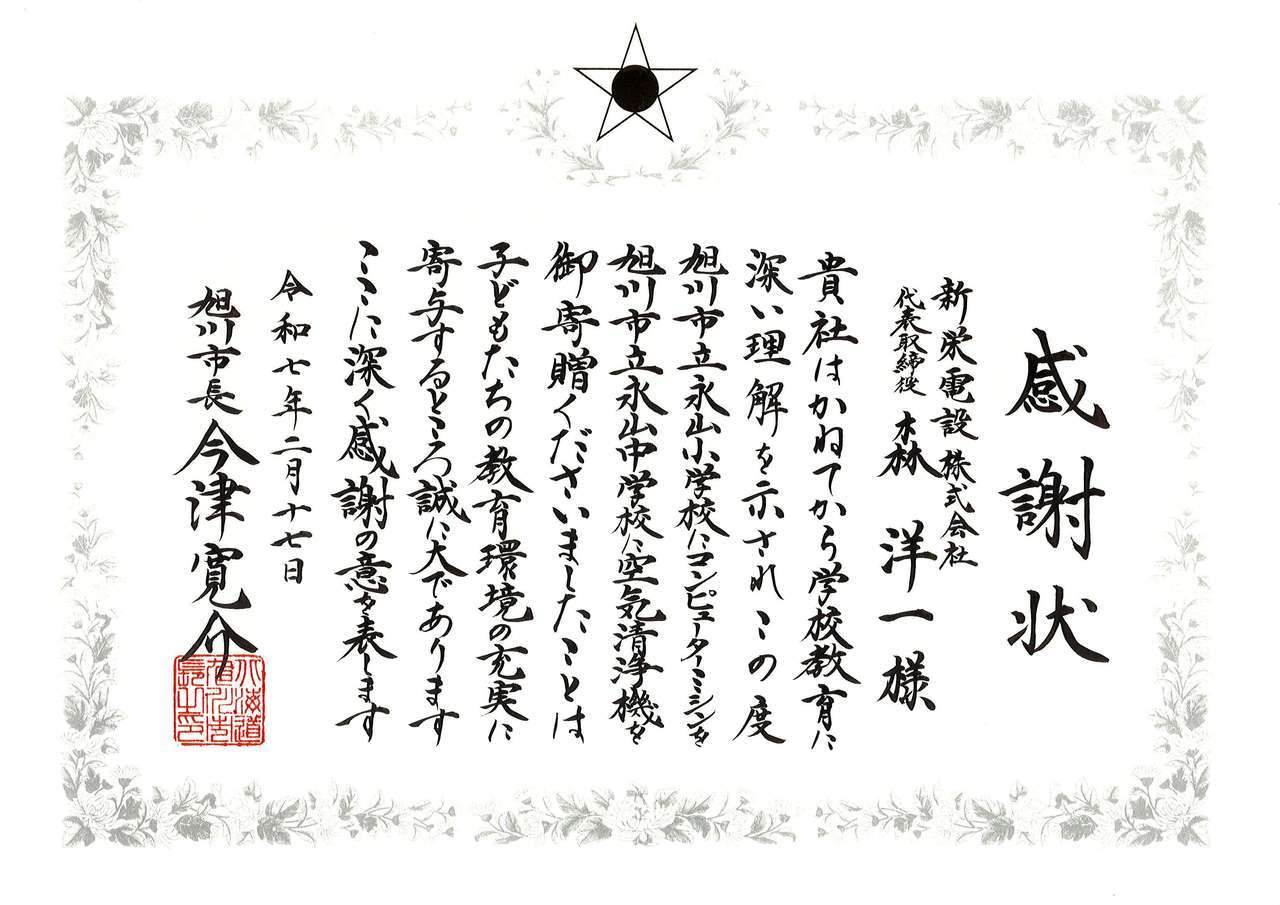 感謝状
新栄電設株式会社
代表取締役 森 洋一様
貴社はかねてから学校教育に
深い理解を示されこの度
旭川市立永山小学校にコンピューターミシンを
旭川市立永山中学校に空気清浄機を
御寄贈くださいましたことは
子どもたちの教育環境の充実に
寄与するところ誠に大であります
ここに深く感謝の意を表します
令和七年二月十七日
旭川市長 今津寛介
北海道
旭川市
長之印